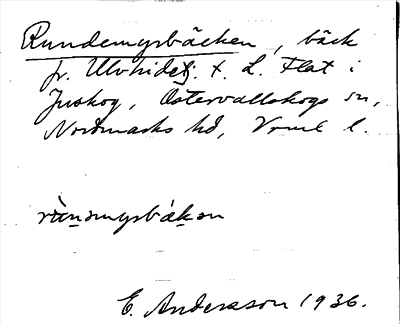 Rundemyrsbäcken, bäck
fr. Ulvhidetj. t. L. Flat i
Juskog, Östervallskogs sn,
Nordmarks hd, Vrml l.
rùnomyrsbäkan
E. Andersson 1936.